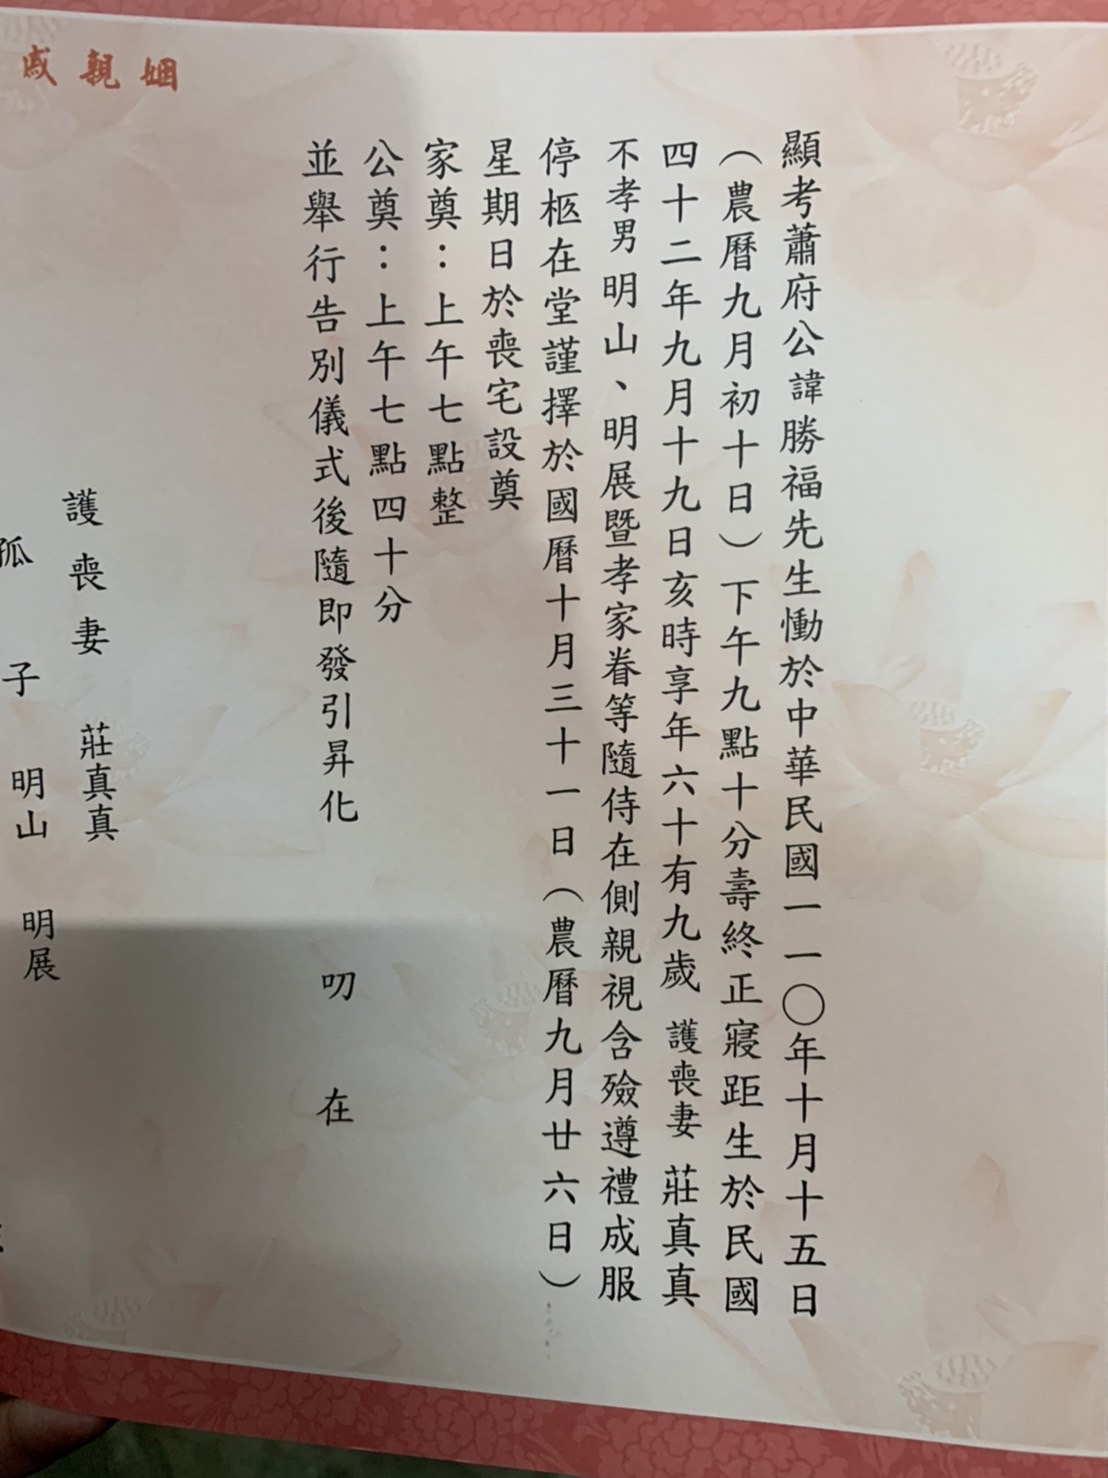 顯考蕭府公諱勝福先生慟於中華民國一一〇年十月十五日
（農曆九月初十日）下午九點十分壽終正寢距生於民國
四十二年九月十九日亥時享年六十有九歲 護喪妻 莊真真
不孝男 明山、明展暨孝家眷等隨侍在側親視含殮遵禮成服
停柩在堂謹擇於國曆十月三十一日（農曆九月廿六日）
星期日於喪宅設奠
家奠：上午七點整
公奠：上午七點四十分
並舉行告別儀式後隨即發引昇化
叨在
姻親戚
護喪妻 莊真真
孤子 明山 明展